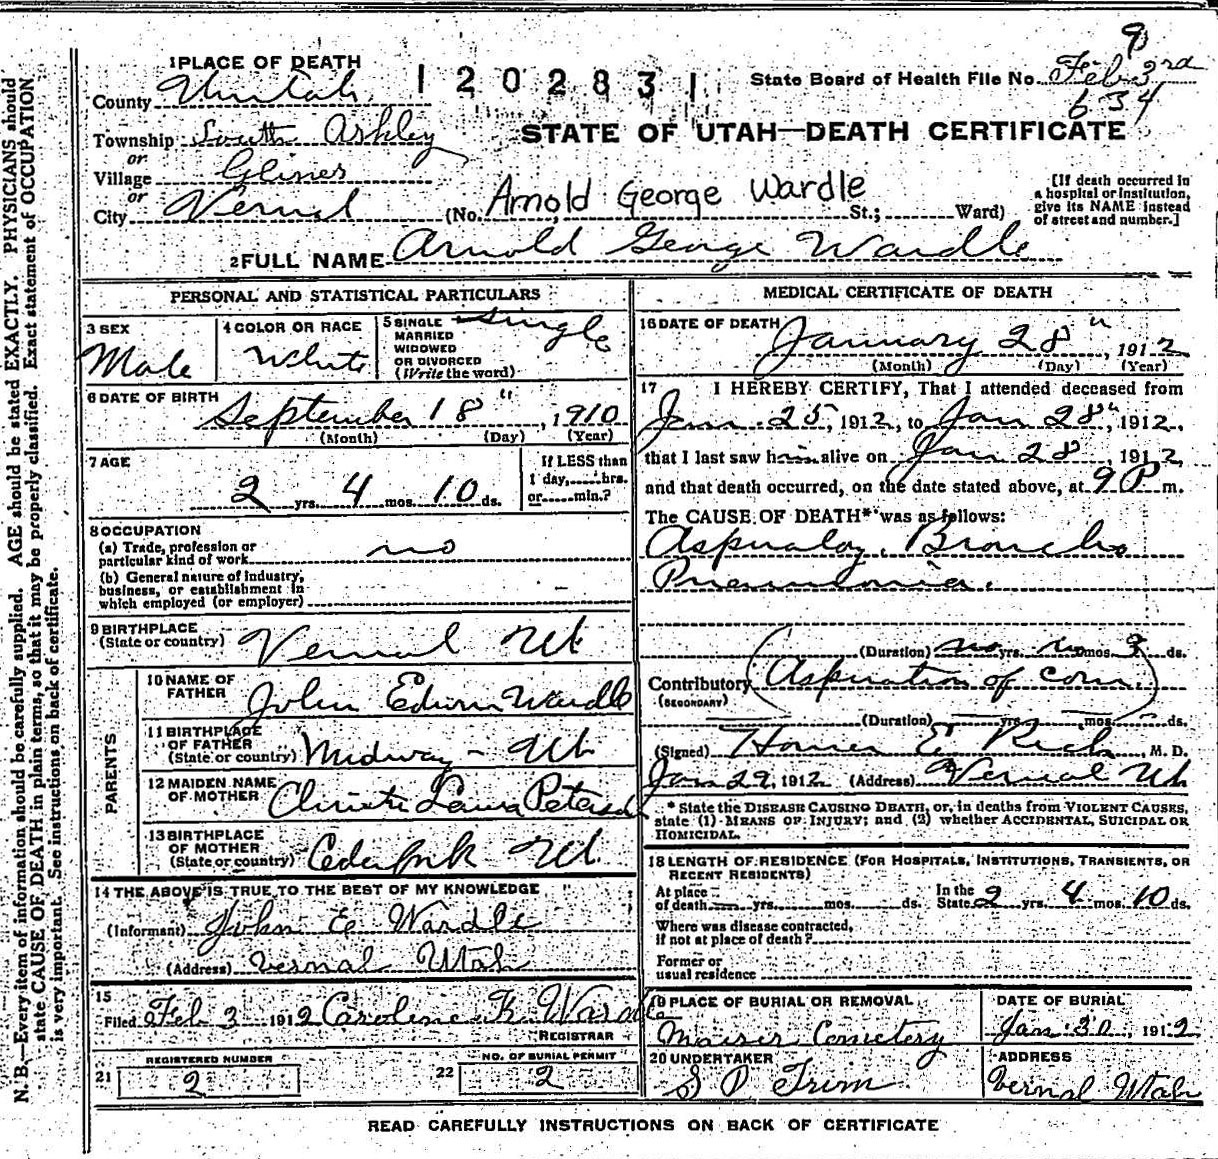 9
1 PLACE OF DEATH
1202831
State Board of Health File No. Feb 3rd
634
County Uintah
STATE OF UTAH—DEATH CERTIFICATE
Township South Ashley
or
Village Glines
or
City Vernal (No. Arnold George Wardle St.; Ward)
[If death occurred in
a hospital or institution,
give its NAME instead
of street and number.]
2 FULL NAME Arnold George Wardle
PERSONAL AND STATISTICAL PARTICULARS
3 SEX
Male
4 COLOR OR RACE
White
5 SINGLE
MARRIED
WIDOWED
OR DIVORCED
(Write the word)
Single
6 DATE OF BIRTH
September 18", 1910
(Month) (Day) (Year)
7 AGE
2 yrs. 4 mos. 10 ds.
If LESS than
1 day, hrs.
or min.?
8 OCCUPATION
(a) Trade, profession or
particular kind of work no
(b) General nature of industry,
business, or establishment in
which employed (or employer) –
9 BIRTHPLACE
(State or country) Vernal Ut
PARENTS
10 NAME OF
FATHER John Edwin Wardle
11 BIRTHPLACE
OF FATHER
(State or country) Midway - Ut
12 MAIDEN NAME
OF MOTHER Christie Laura Peterson
13 BIRTHPLACE
OF MOTHER
(State or country) Cedarfork Ut.
14 THE ABOVE IS TRUE TO THE BEST OF MY KNOWLEDGE
(Informant) John E Wardle
(Address) Vernal Utah
15
Filed Feb 3 1912 Caroline K. Wardle
REGISTRAR
REGISTERED NUMBER
21 2
NO. OF BURIAL PERMIT
22 2
MEDICAL CERTIFICATE OF DEATH
16 DATE OF DEATH
January 28", 1912
(Month) (Day) (Year)
17 I HEREBY CERTIFY, That I attended deceased from
Jan. 25, 1912, to Jan 28", 1912,
that I last saw him alive on Jan 28, 1912,
and that death occurred, on the date stated above, at 9 P m.
The CAUSE OF DEATH* was as follows:
Broncho
Pneumonia.
(Duration) no yrs. no mos. 3 ds.
Contributory (Aspiration of corn)
(SECONDARY)
(Duration) yrs. mos. ds.
(Signed) Homer E Rich, M. D.
Jan 29, 1912 (Address) Vernal Ut
* State the DISEASE CAUSING DEATH, or, in deaths from VIOLENT CAUSES,
state (1) MEANS OF INJURY; and (2) whether ACCIDENTAL, SUICIDAL OR
HOMICIDAL.
18 LENGTH OF RESIDENCE (FOR HOSPITALS, INSTITUTIONS, TRANSIENTS, OR
RECENT RESIDENTS)
At place
of death yrs. mos. ds.
In the
State 2 yrs. 4 mos. 10 ds.
Where was disease contracted,
if not at place of death?
Former or
usual residence
19 PLACE OF BURIAL OR REMOVAL
Maeser Cemetery
DATE OF BURIAL
Jan. 30, 1912
20 UNDERTAKER
S P Trim
ADDRESS
Vernal Utah
READ CAREFULLY INSTRUCTIONS ON BACK OF CERTIFICATE
N. B.—Every item of information should be carefully supplied. AGE should be stated EXACTLY. PHYSICIANS should
state CAUSE OF DEATH in plain terms, so that it may be properly classified. Exact statement of OCCUPATION
is very important. See instructions on back of certificate.